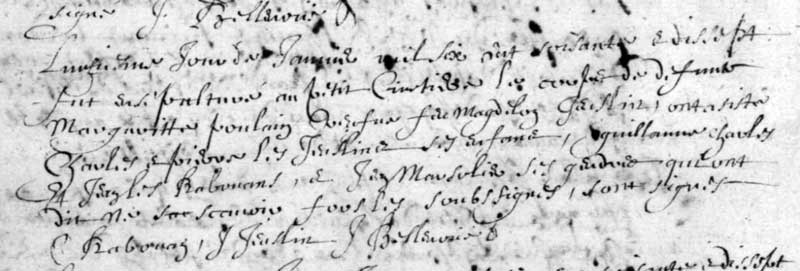 signé J Bellevoie
Lunziesme Jour de Janvier mil six cent soixante & dissept
fut ensepulturé au petit Cimetiere le corps de defunte
Margueritte poulain vefve feu Magdelon Jeslin, ont asisté
Charles & pierre les Jeslins ses enfans, guillaume Charles
& Jean les Rabouans, & Jean Marsolie ses gendres qui ont
dit ne scavoir fors les soubssignes, sont signes
C Rabouan, J Jeslin J Bellevoie
soixante & dissept